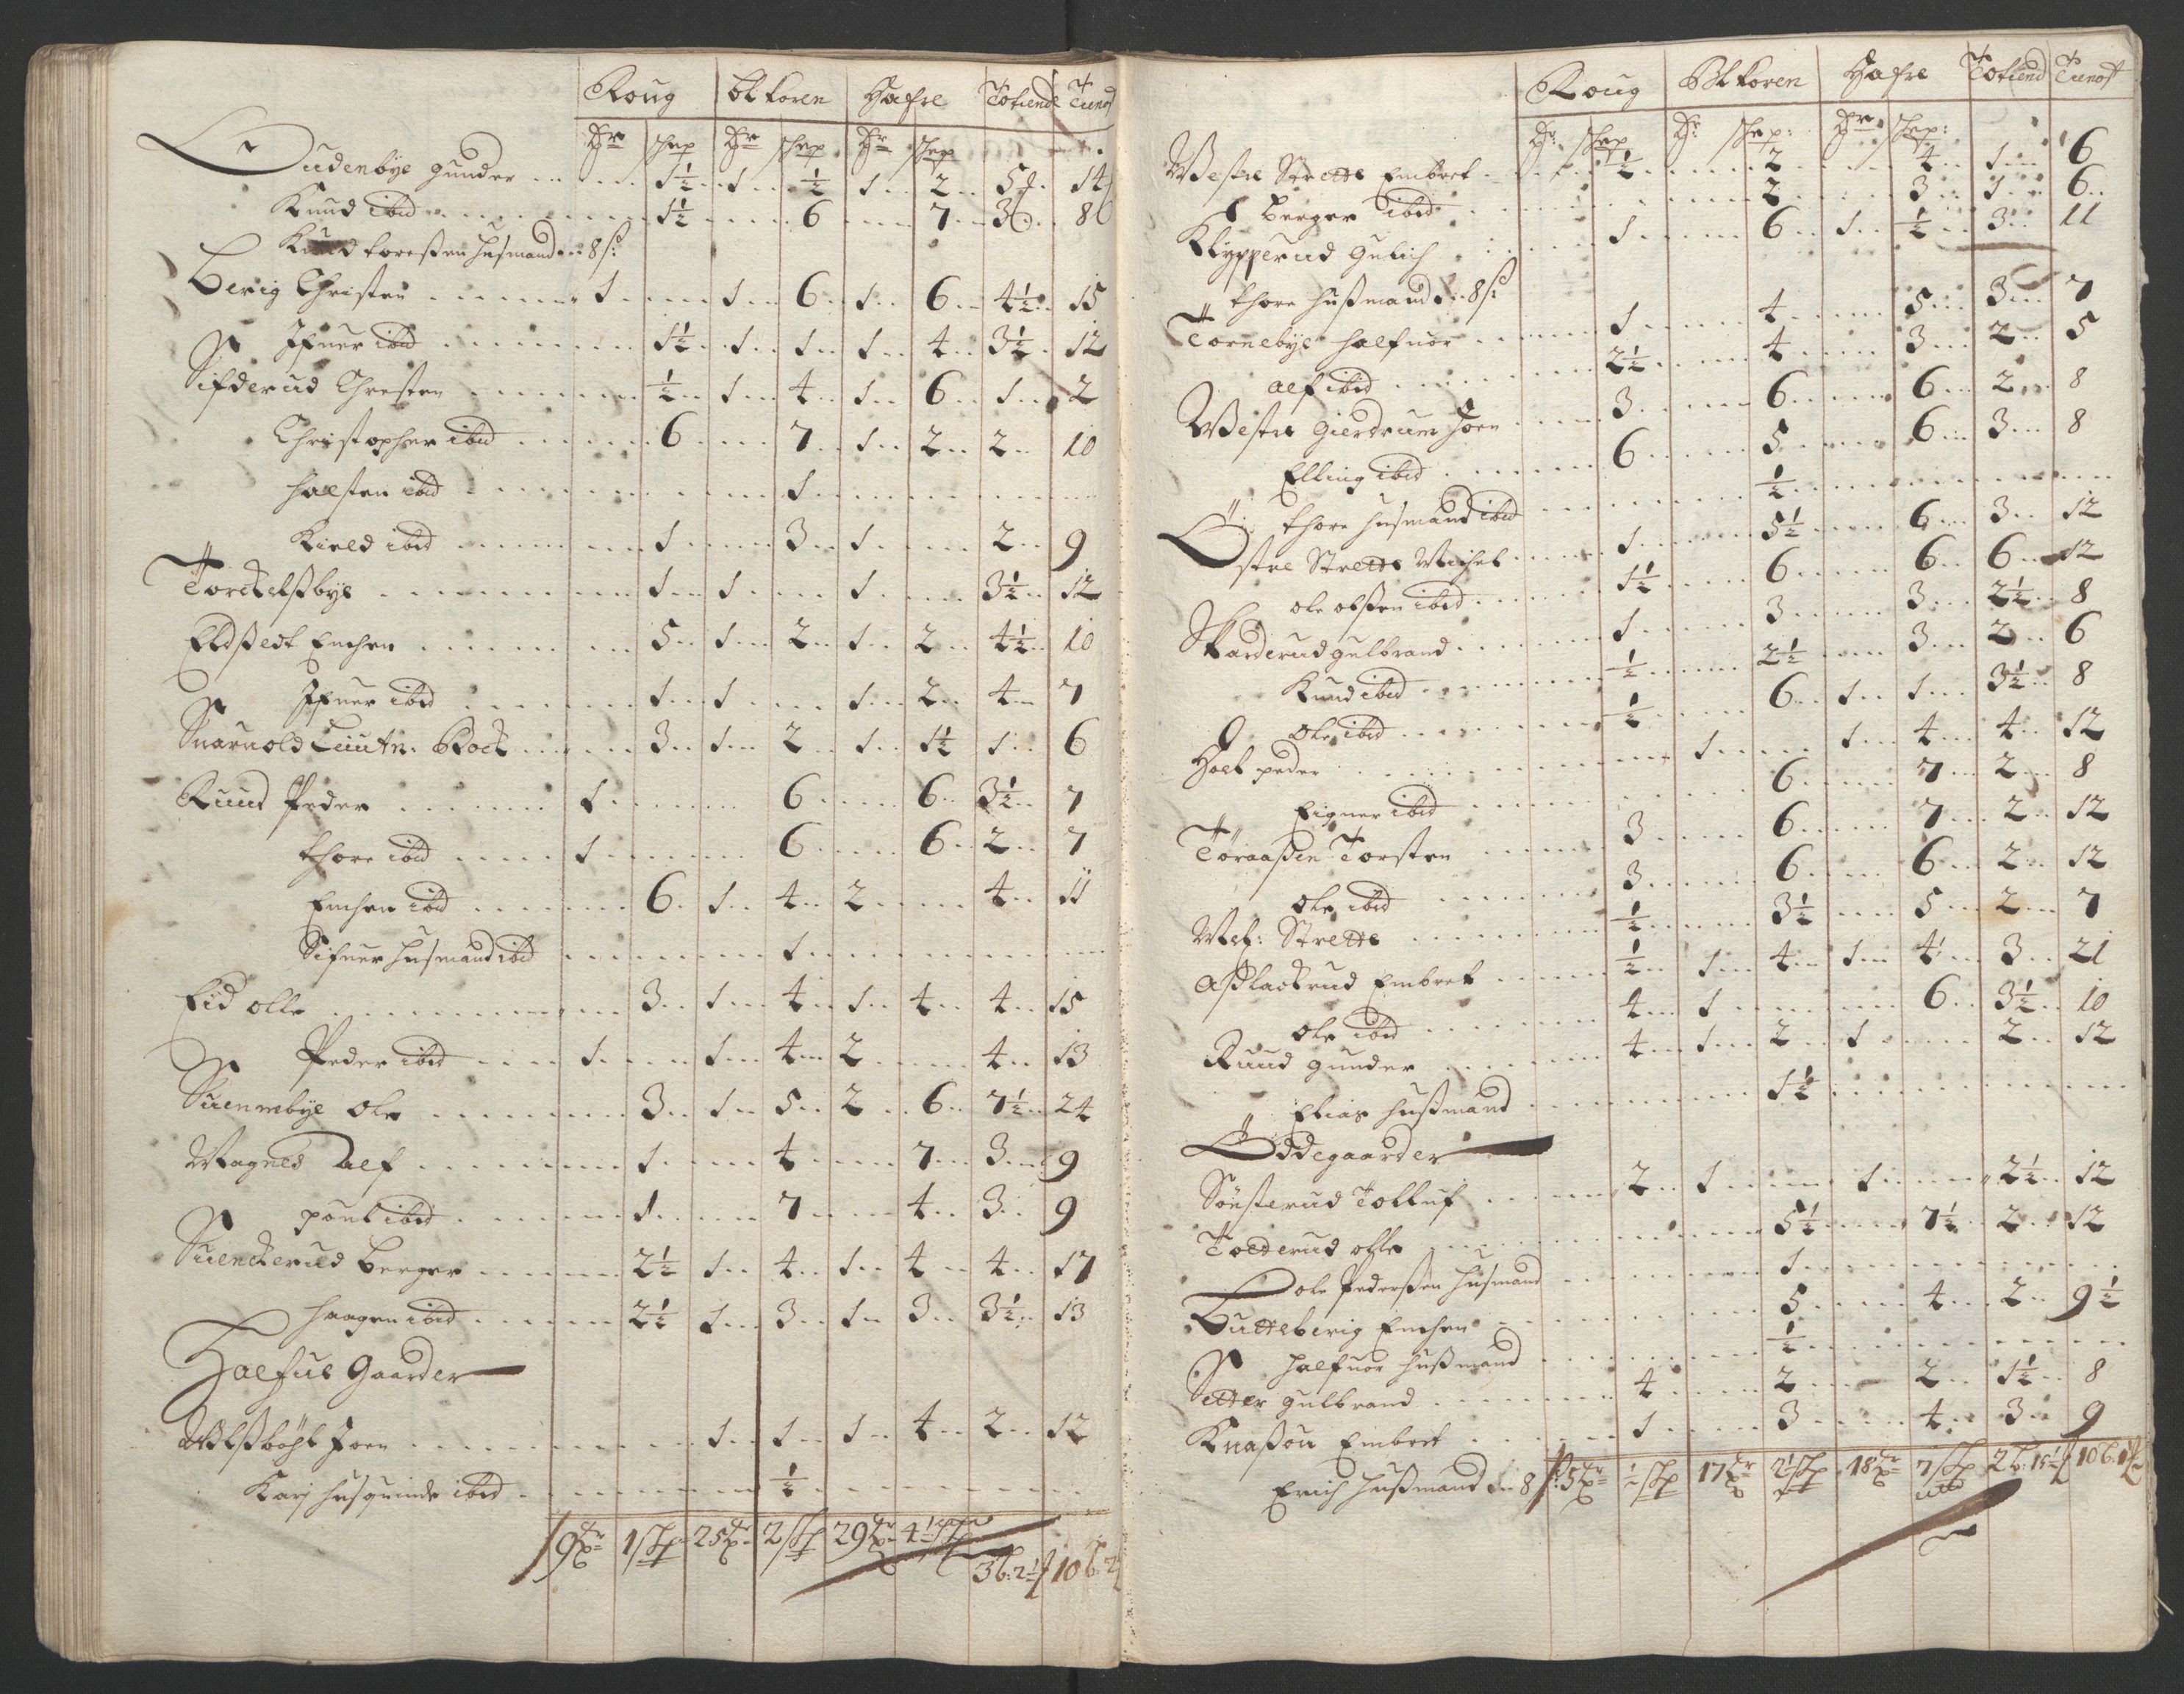 Roug Bl koren Hafre Tofiend Tienost
Hr skep Hr skep Hr skep
Oudenbÿe gunder 1½ 1 ½ 1 2 5 14
Knud ibid 1½ 6 7 3 8
Knud toreßen husmand 8 ß
Berig Christen 1 1 6 1 6 4½ 15
Ifuer ibid 1½ 1 1 1 4 3½ 12
Sifderud Chresten ½ 1 4 1 6 1 2
Christopher ibid 6 7 1 2 2 10
halsten ibid 1
Kield ibid 1 3 1 2 9
Torckelßbÿe 1 1 1 3½ 12
Eldstedt Enchen 5 1 2 1 2 4½ 10
Ifuer ibid 1 1 1 2 4 7
Snarnold Leutn. Bock 3 1 2 1 1½ 1 6
Ruud Peder 1 6 6 3½ 7
thore ibid 1 6 6 2 7
Enchen ibid 6 1 4 2 4 11
Sifuer husmand ibid 1
Eid olle 3 1 4 1 4 4 15
Peder ibid 1 1 4 2 4 13
Suennebÿe Ole 3 1 5 2 6 7½ 24
Magnes Alf 1 4 7 3 9
pouel ibid 1 7 4 3 9
Suenckerud Berger 2½ 1 4 1 4 4 17
haagen ibid 2½ 1 3 1 3 3½ 13
Halfue Gaarder
Wilßbøhl Joen 1 1 1 4 2 12
Karj husquinde ibid ½
9 1 skp 25 2 skp 29 4½ skp 3 b: 2½ 10 b: 2
Roug Bl koren Hafre Tofiend Tienost
Hr skep Hr skep: Hr skep:
Westre Strette Embret ½ 2 4 1 6
Berger ibid 2 3 1 6
Klÿpperud Gulich 1 6 1 ½ 3 11
thore hußmand 8 ß
Tornebÿe halfuor 1 4 5 3 7
alf ibid 2½ 4 3 2 5
Westre Gierdrum Joen 3 6 6 2 8
Elling ibid 6 5 6 3 8
thore husmand ibid ½
Östre Strette Michel 1 5½ 6 3 12
ole olßen ibid 1½ 6 6 6 12
Skarderud gulbrand 1 3 3 2½ 8
Knud ibid ½ 2½ 3 2 6
Ole ibid ½ 6 1 1 3½ 8
Holt peder 1 1 4 4 12
Eigner ibid 6 7 2 8
Toraaßen Torsten 3 6 7 2 12
Ole ibid 3 6 6 2 12
Mel: Strette ½ 3½ 5 2 7
Aßlackrud Embret ½ 1 4 1 4 3 21
Ole ibid 4 1 6 3½ 10
Ruud gunder 4 1 2 1 2 12
Elias hußmand 1½
Ödegaarder
Sönsterud Tolluf 2 1 1 2½ 12
Tolderud olle 5½ 7½ 2 12
Ole Pederßen husmand 1
Butteberig Enchen 5 4 2 9½
halfuor hußmand ½
Setter gulbrand 4 2 2 1½ 8
Knaßon Embret 1 3 4 3 9
Erich hußmand 8 ß 5 ½ skp 17 2½ skp 18 7 skp 2 b: 15½ 10 b: